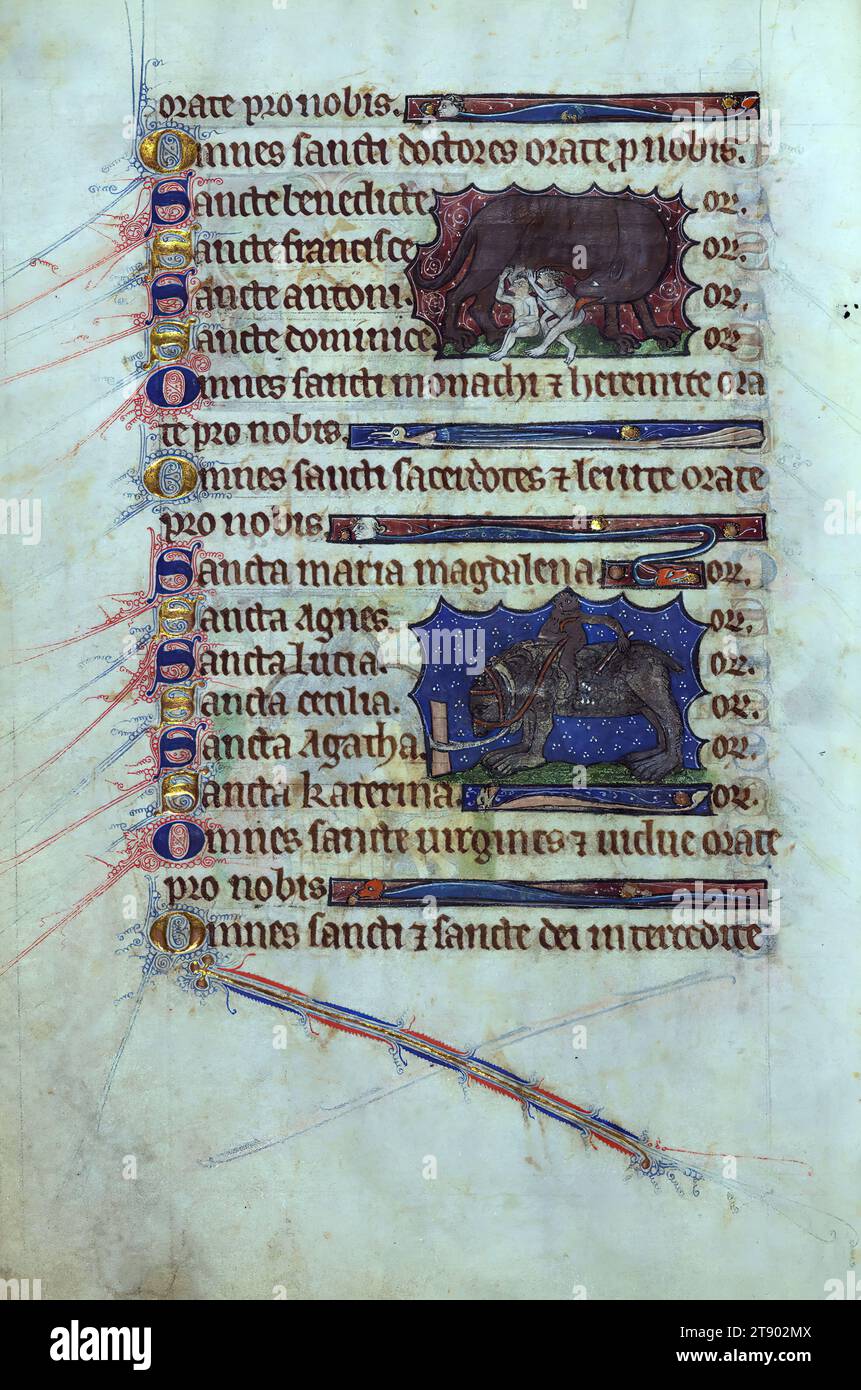 orate pro nobis.
Omnes sancti doctores orate p nobis.
Sancte benedicte or.
Sancte francisce or.
Sancte antoni. or.
Sancte dominice or
Omnes sancti monachi ⁊ heremite ora
te pro nobis.
Omnes sancti sacerdotes ⁊ leuite orate
pro nobis
Sancta maria magdalena or.
Sancta Agnes. or.
Sancta Lucia. or.
Sancta cecilia. or.
Sancta Agatha. or.
Sancta katerina. or.
Omnes sancte uirgines ⁊ uidue orate
pro nobis
Omnes sancti ⁊ sancte dei intercedite
alamy
Image ID: 2T902MX
www.alamy.com